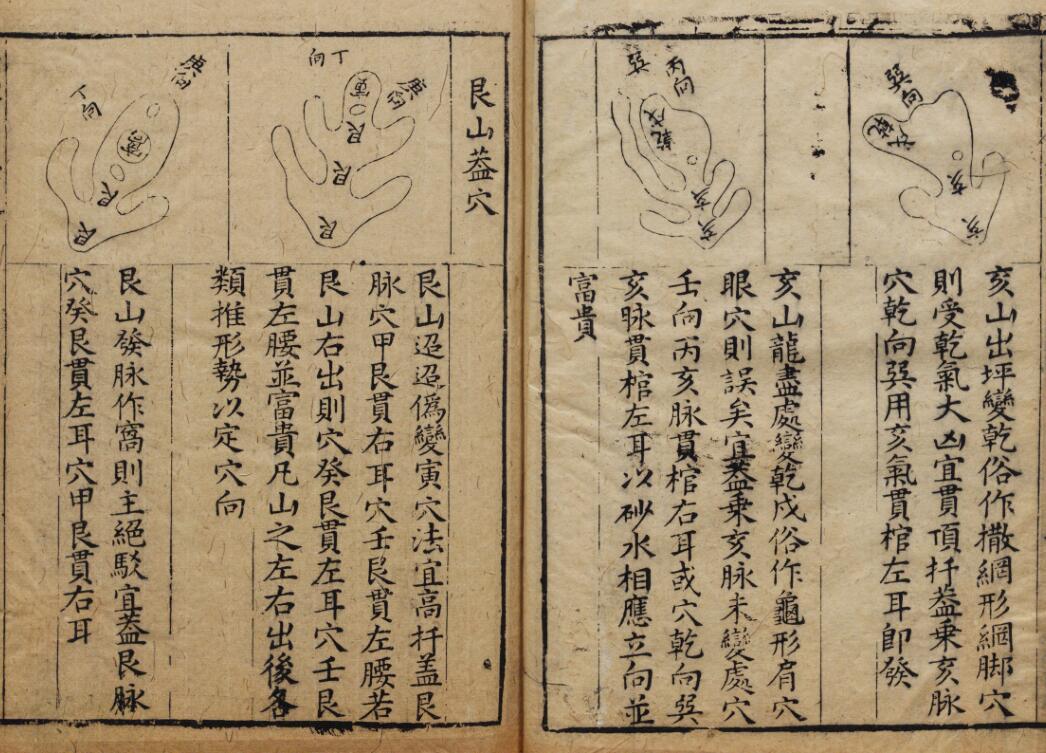 巽向
乾
亥
亥
亥山出坪變乾俗作撒網形網脚穴
則受乾氣大凶宜貫頂扦葢乗亥脉
穴乾向巽用亥氣貫棺左耳即發
丙向
巽
乾戌
亥
亥
亥
亥山龍盡處變乾戌俗作龜形肩穴
眼穴則誤矣宜葢乗亥脉未變處穴
壬向丙亥脉貫棺右耳或穴乾向巽
亥脉貫棺左耳以砂水相應立向並
富貴
艮山葢穴
丁向
庚向
寅
艮
艮
艮
艮山迢迢僞變寅穴法宜高扦盖艮
脉穴甲艮貫右耳穴壬艮貫左腰若
艮山右出則穴癸艮貫左耳穴壬艮
貫左腰並富貴凡山之左右出後各
類推形勢以定穴向
庚向
丁向
窩
艮
艮
艮山發脉作窩則主絕駁宜葢艮脉
穴癸艮貫左耳穴甲艮貫右耳